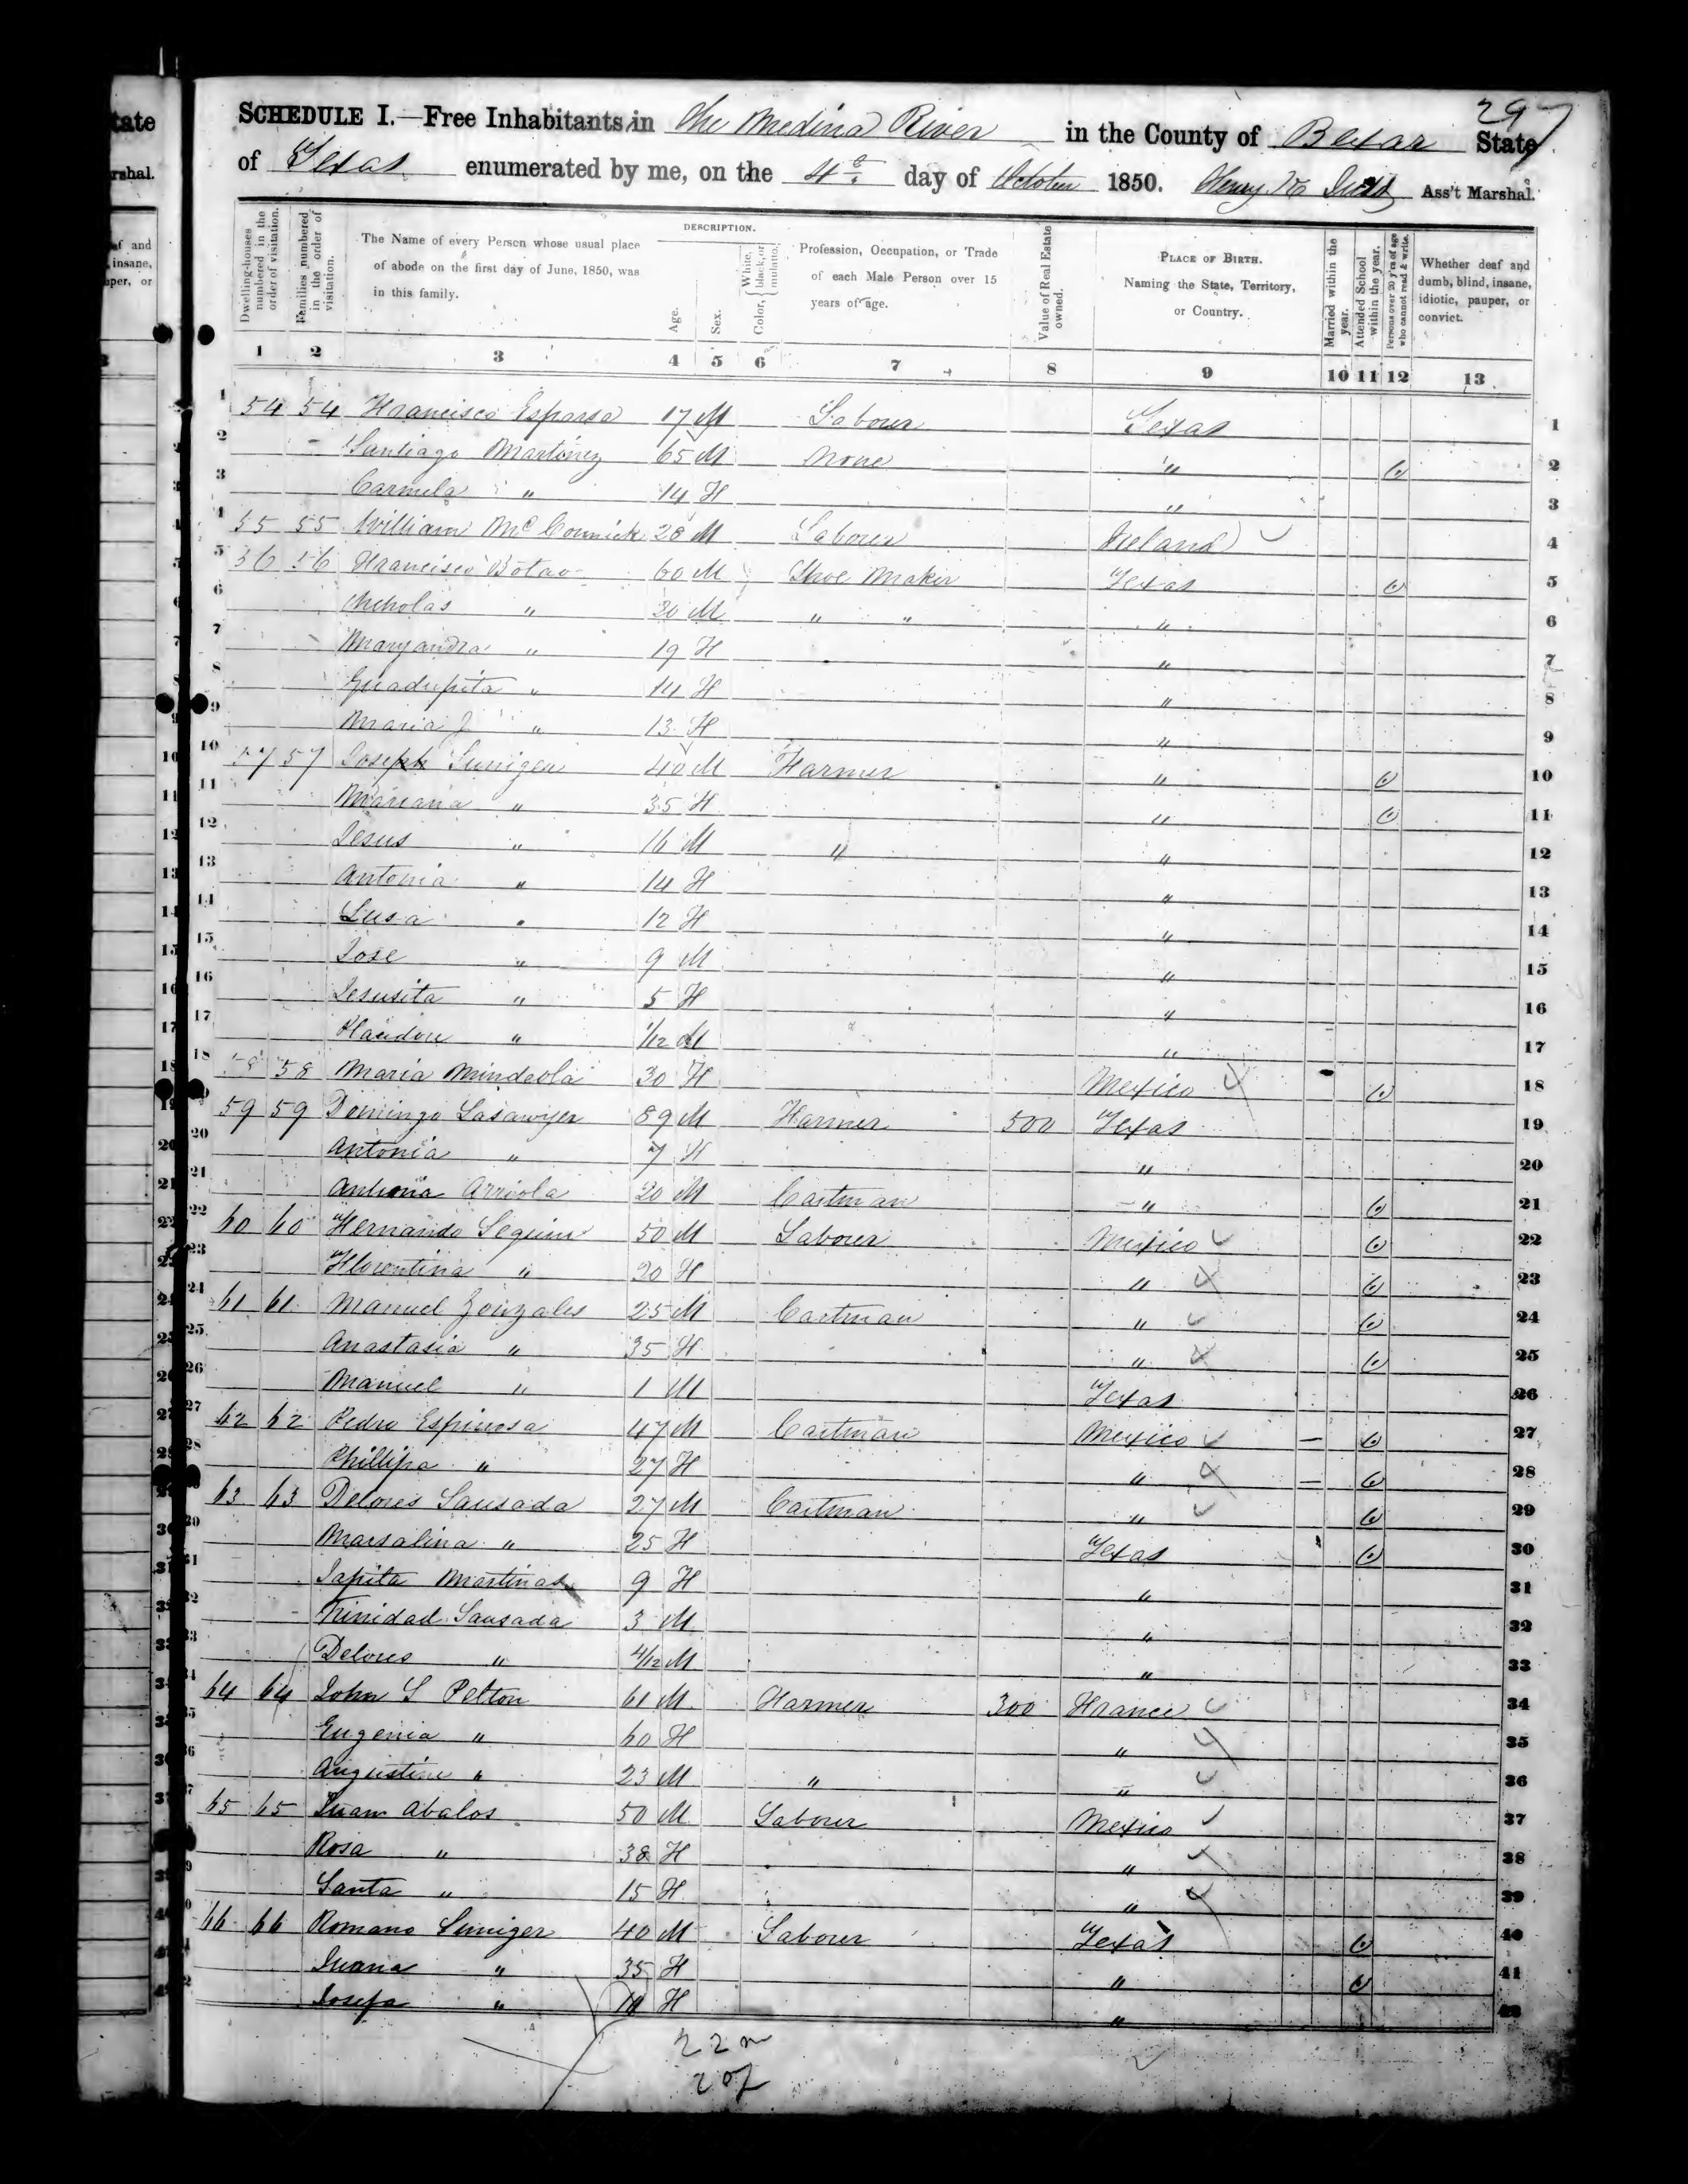 297
SCHEDULE I.—Free Inhabitants in The Medina River in the County of Bexar State
of Texas enumerated by me, on the 4th day of October 1850. Henry Ass't Marshal.
Dwelling-houses numbered in the order of visitation.
Families numbered in the order of visitation.
The Name of every Person whose usual place of abode on the first day of June, 1850, was in this family.
DESCRIPTION.
Age.
Sex.
Color, { White, black, or mulatto.
Profession, Occupation, or Trade of each Male Person over 15 years of age.
Value of Real Estate owned.
PLACE OF BIRTH. Naming the State, Territory, or Country.
Married within the year.
Attended School within the year.
Persons over 20 y'rs of age who cannot read & write.
Whether deaf and dumb, blind, insane, idiotic, pauper, or convict.
1 2 3 4 5 6 7 8 9 10 11 12 13
1 54 54 Francisco Esparsa 17 M Labourer Texas 1
2 Santiago Martinez 65 M None " 2
3 Carmela " 14 F " 3
4 55 55 William McCormick 28 M Labourer Ireland 4
5 56 56 Francisco Botao 60 M Shoe Maker Texas 5
6 Nicholas " 20 M " " " 6
7 Maryandra " 19 F " 7
8 Guadupita " 14 F " 8
9 Maria J " 13 F " 9
10 57 57 Joseph Sunigea 40 M Farmer " 10
11 Mariana " 35 F " 11
12 Jesus " 16 M " " 12
13 Antonia " 14 F " 13
14 Lusa " 12 F " 14
15 Jose " 9 M " 15
16 Jesusita " 5 F " 16
17 " 1/12 M " 17
18 58 58 Maria Mindeola 30 F Mexico 18
19 59 59 Domingo Lasawyer 89 M Farmer 500 Texas 19
20 Antonia " 7 F " 20
21 Antonia Arriola 20 M Cartman " 21
22 60 60 Hernando Seguin 50 M Labourer Mexico 22
23 Florentina " 20 F " 23
24 61 61 Manuel Gonzales 25 M Cartman " 24
25 Anastasia " 35 F " 25
26 Manuel " 1 M Texas 26
27 62 62 Pedro Espinosa 47 M Cartman Mexico 27
28 Phillipa " 27 F " 28
29 63 63 Delores Sausada 27 M Cartman " 29
30 Marsalina " 25 F Texas 30
31 Japita Martinas 9 F " 31
32 Trinidad Sausada 3 M " 32
33 Delores " 4/12 M " 33
34 64 64 John S Pelton 61 M Farmer 300 France 34
35 Eugenia " 60 F " 35
36 Augustine " 23 M " " 36
37 65 65 Juan Abalos 50 M Labourer Mexico 37
38 Rosa " 38 F " 38
39 Santa " 15 F " 39
40 66 66 Romano Suniger 40 M Labourer Texas 40
41 Juana " 35 F " 41
42 Josefa " 10 F " 42
22 m
20 f